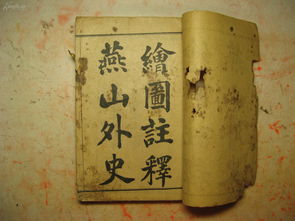 繪圖註釋
燕山外史